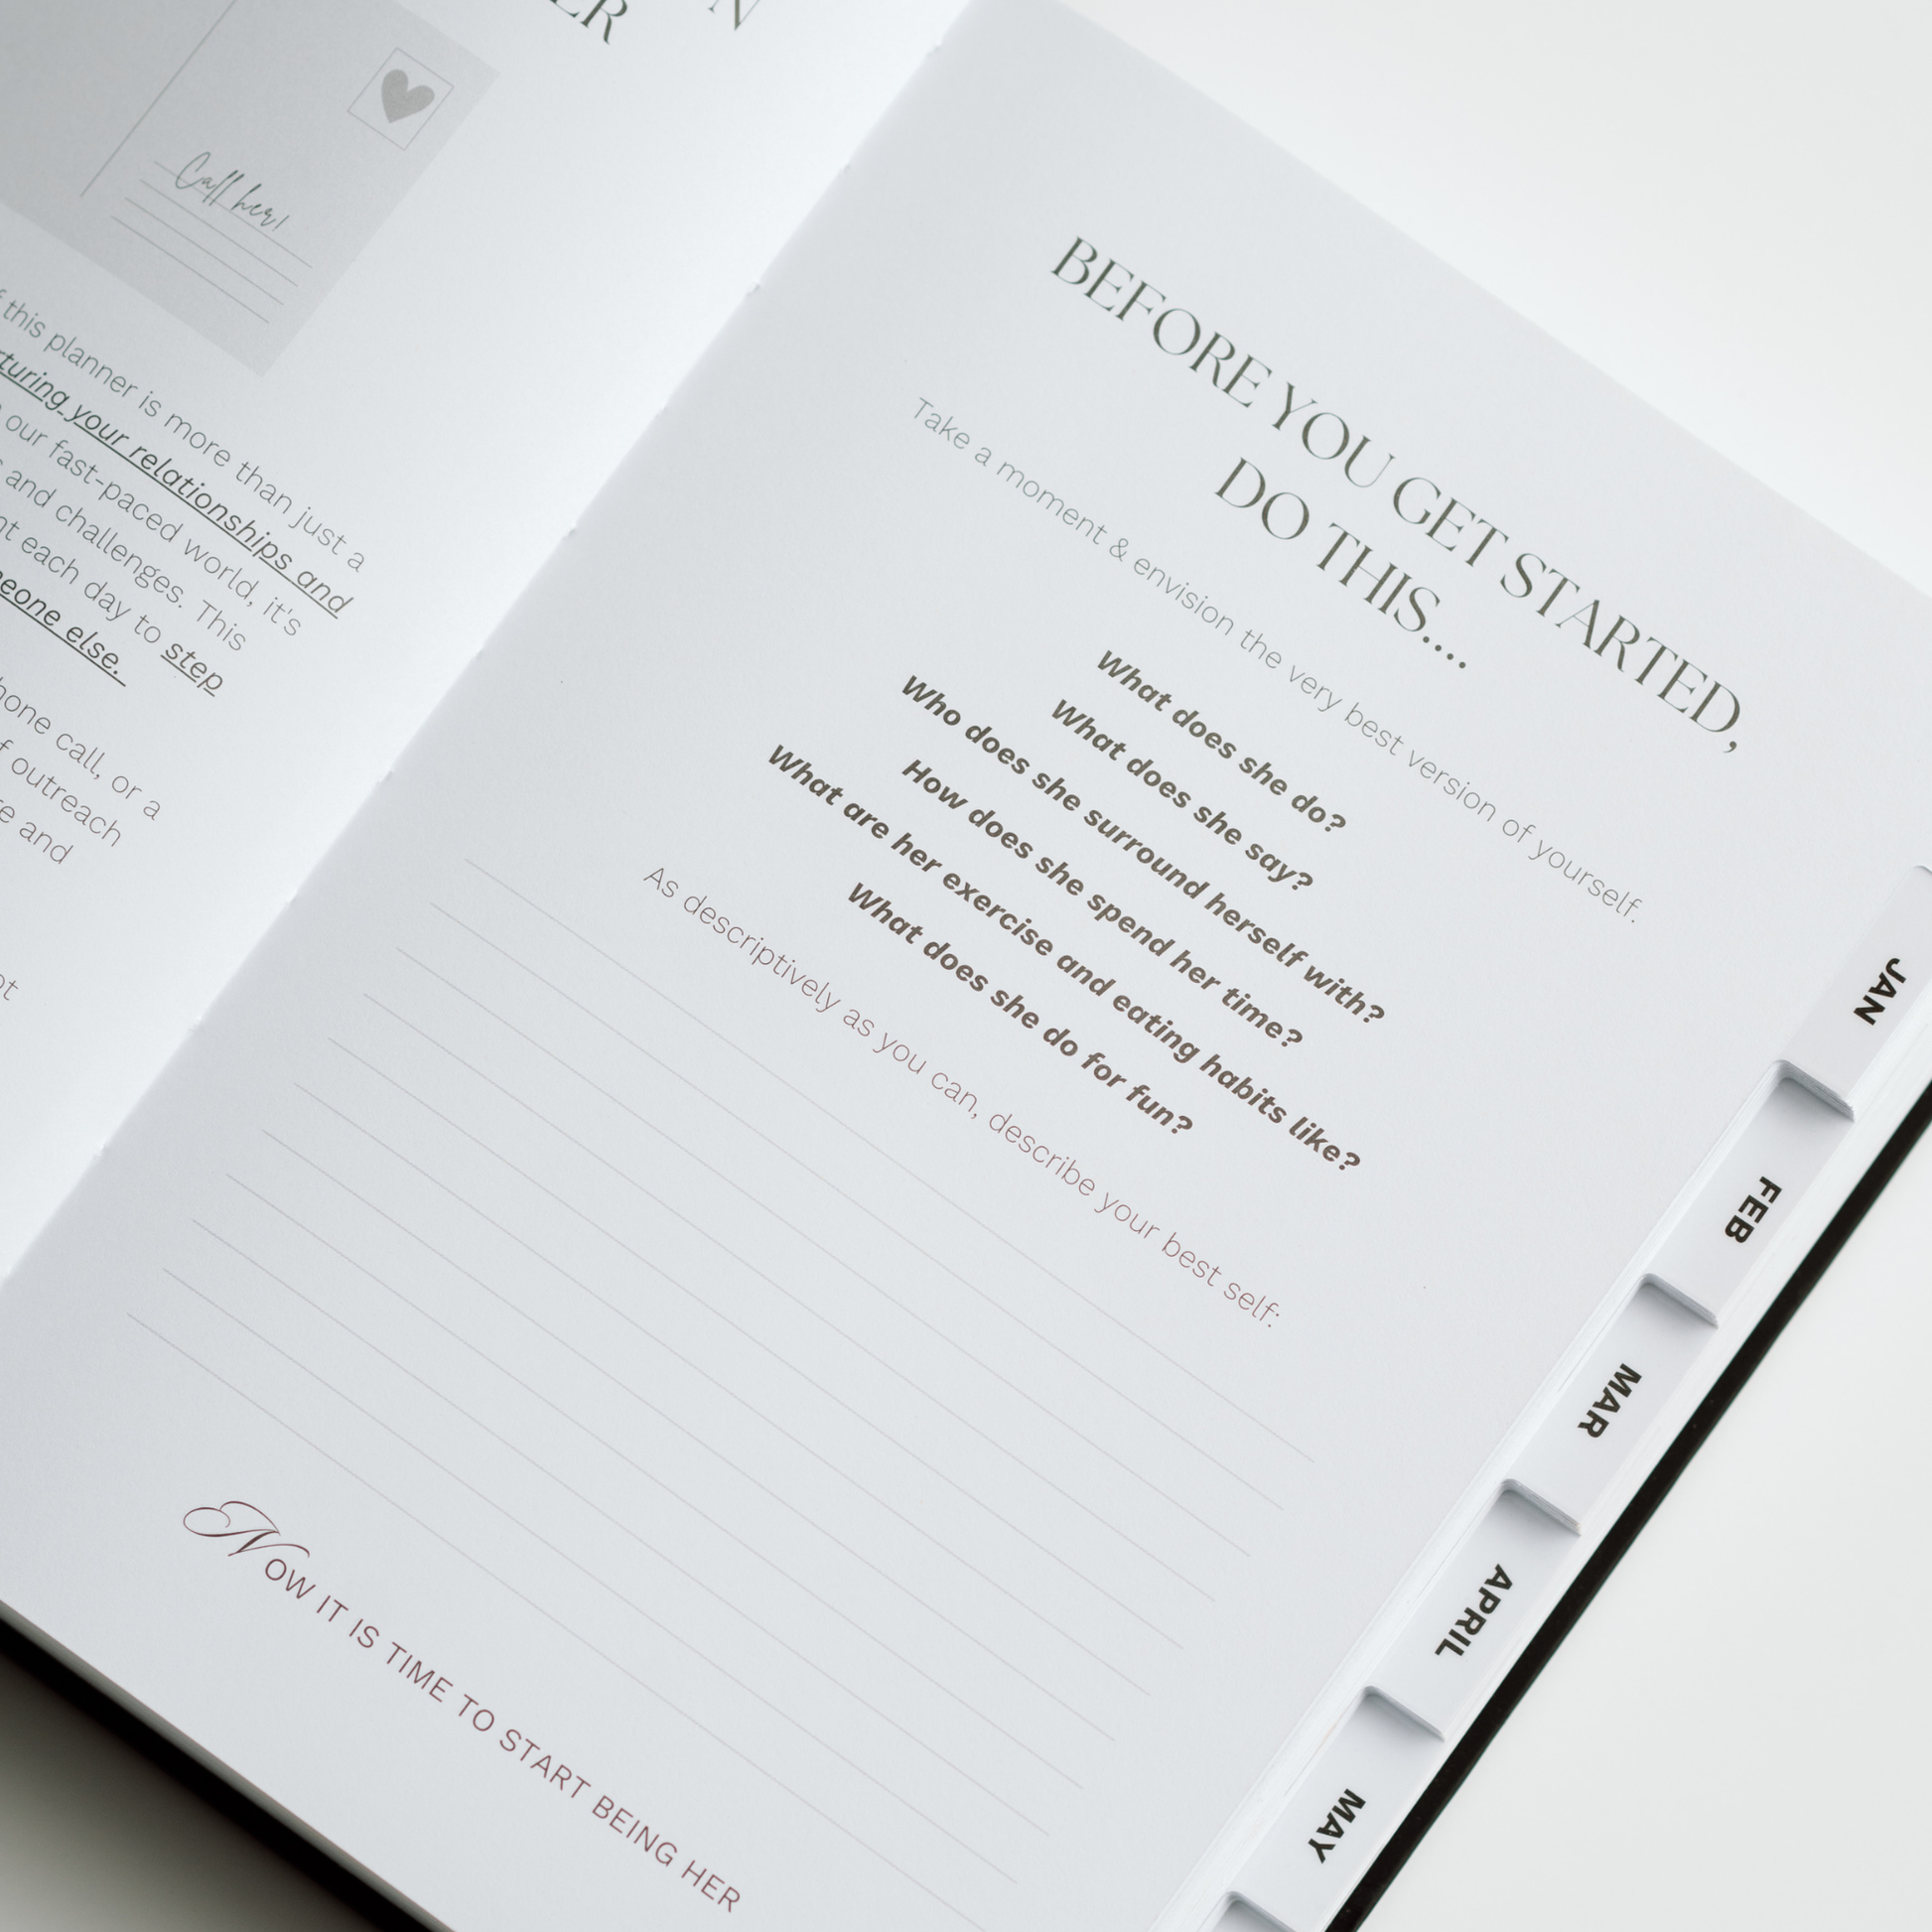 N
ER
Call her!
this planner is more than just a
your relationships and
our fast-paced world, it's
and challenges. This
each day to step
else.
call, or a
outreach
and
BEFORE YOU GET STARTED,
DO THIS....
Take a moment & envision the very best version of yourself.
What does she do?
What does she say?
Who does she surround herself with?
How does she spend her time?
What are her exercise and eating habits like?
What does she do for fun?
As descriptively as you can, describe your best self:
NOW IT IS TIME TO START BEING HER
JAN
FEB
MAR
APRIL
MAY